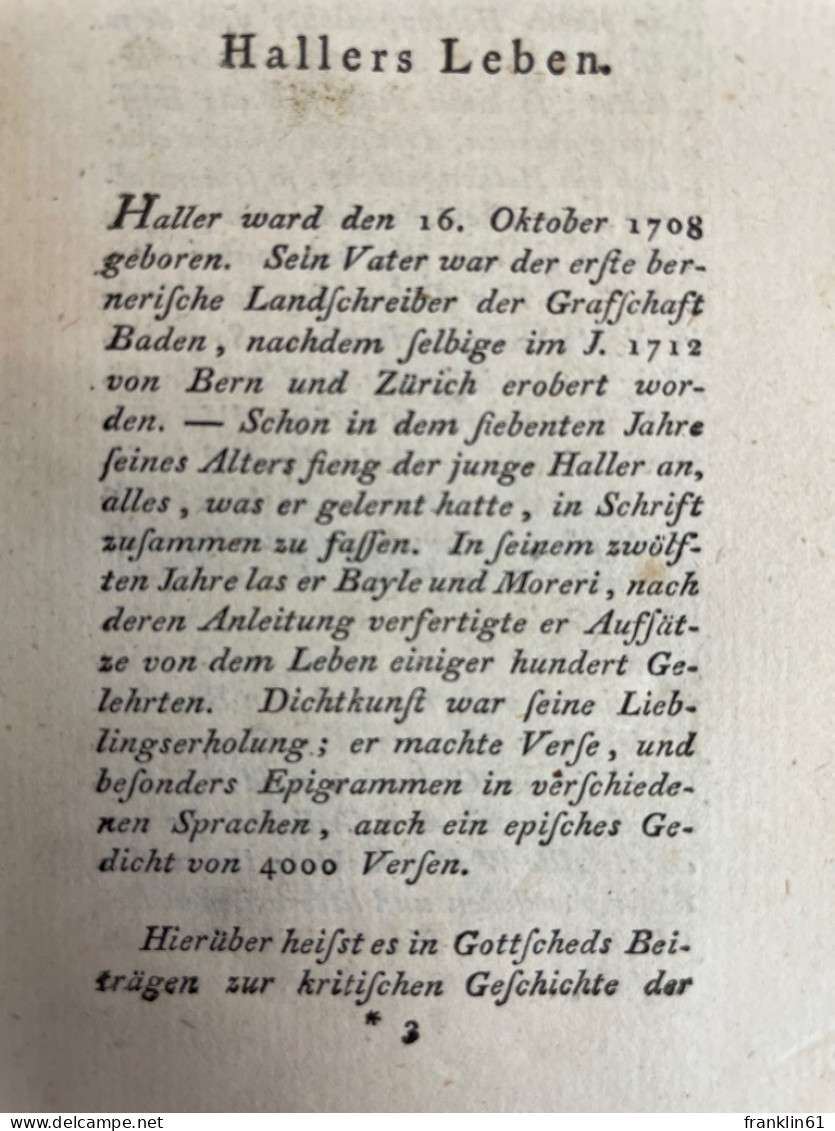 Hallers Leben.
Haller ward den 16. Oktober 1708
geboren. Sein Vater war der erſte ber-
neriſche Landſchreiber der Grafſchaft
Baden, nachdem ſelbige im J. 1712
von Bern und Zürich erobert wor-
den. — Schon in dem ſiebenten Jahre
ſeines Alters fieng der junge Haller an,
alles, was er gelernt hatte, in Schrift
zuſammen zu faſſen. In ſeinem zwölf-
ten Jahre las er Bayle und Moreri, nach
deren Anleitung verfertigte er Aufſät-
ze von dem Leben einiger hundert Ge-
lehrten. Dichtkunſt war ſeine Lieb-
lingserholung; er machte Verſe, und
beſonders Epigrammen in verſchiede-
nen Sprachen, auch ein epiſches Ge-
dicht von 4000 Verſen.
Hierüber heiſst es in Gottſcheds Bei-
trägen zur kritiſchen Geſchichte der
* 3
franklin61